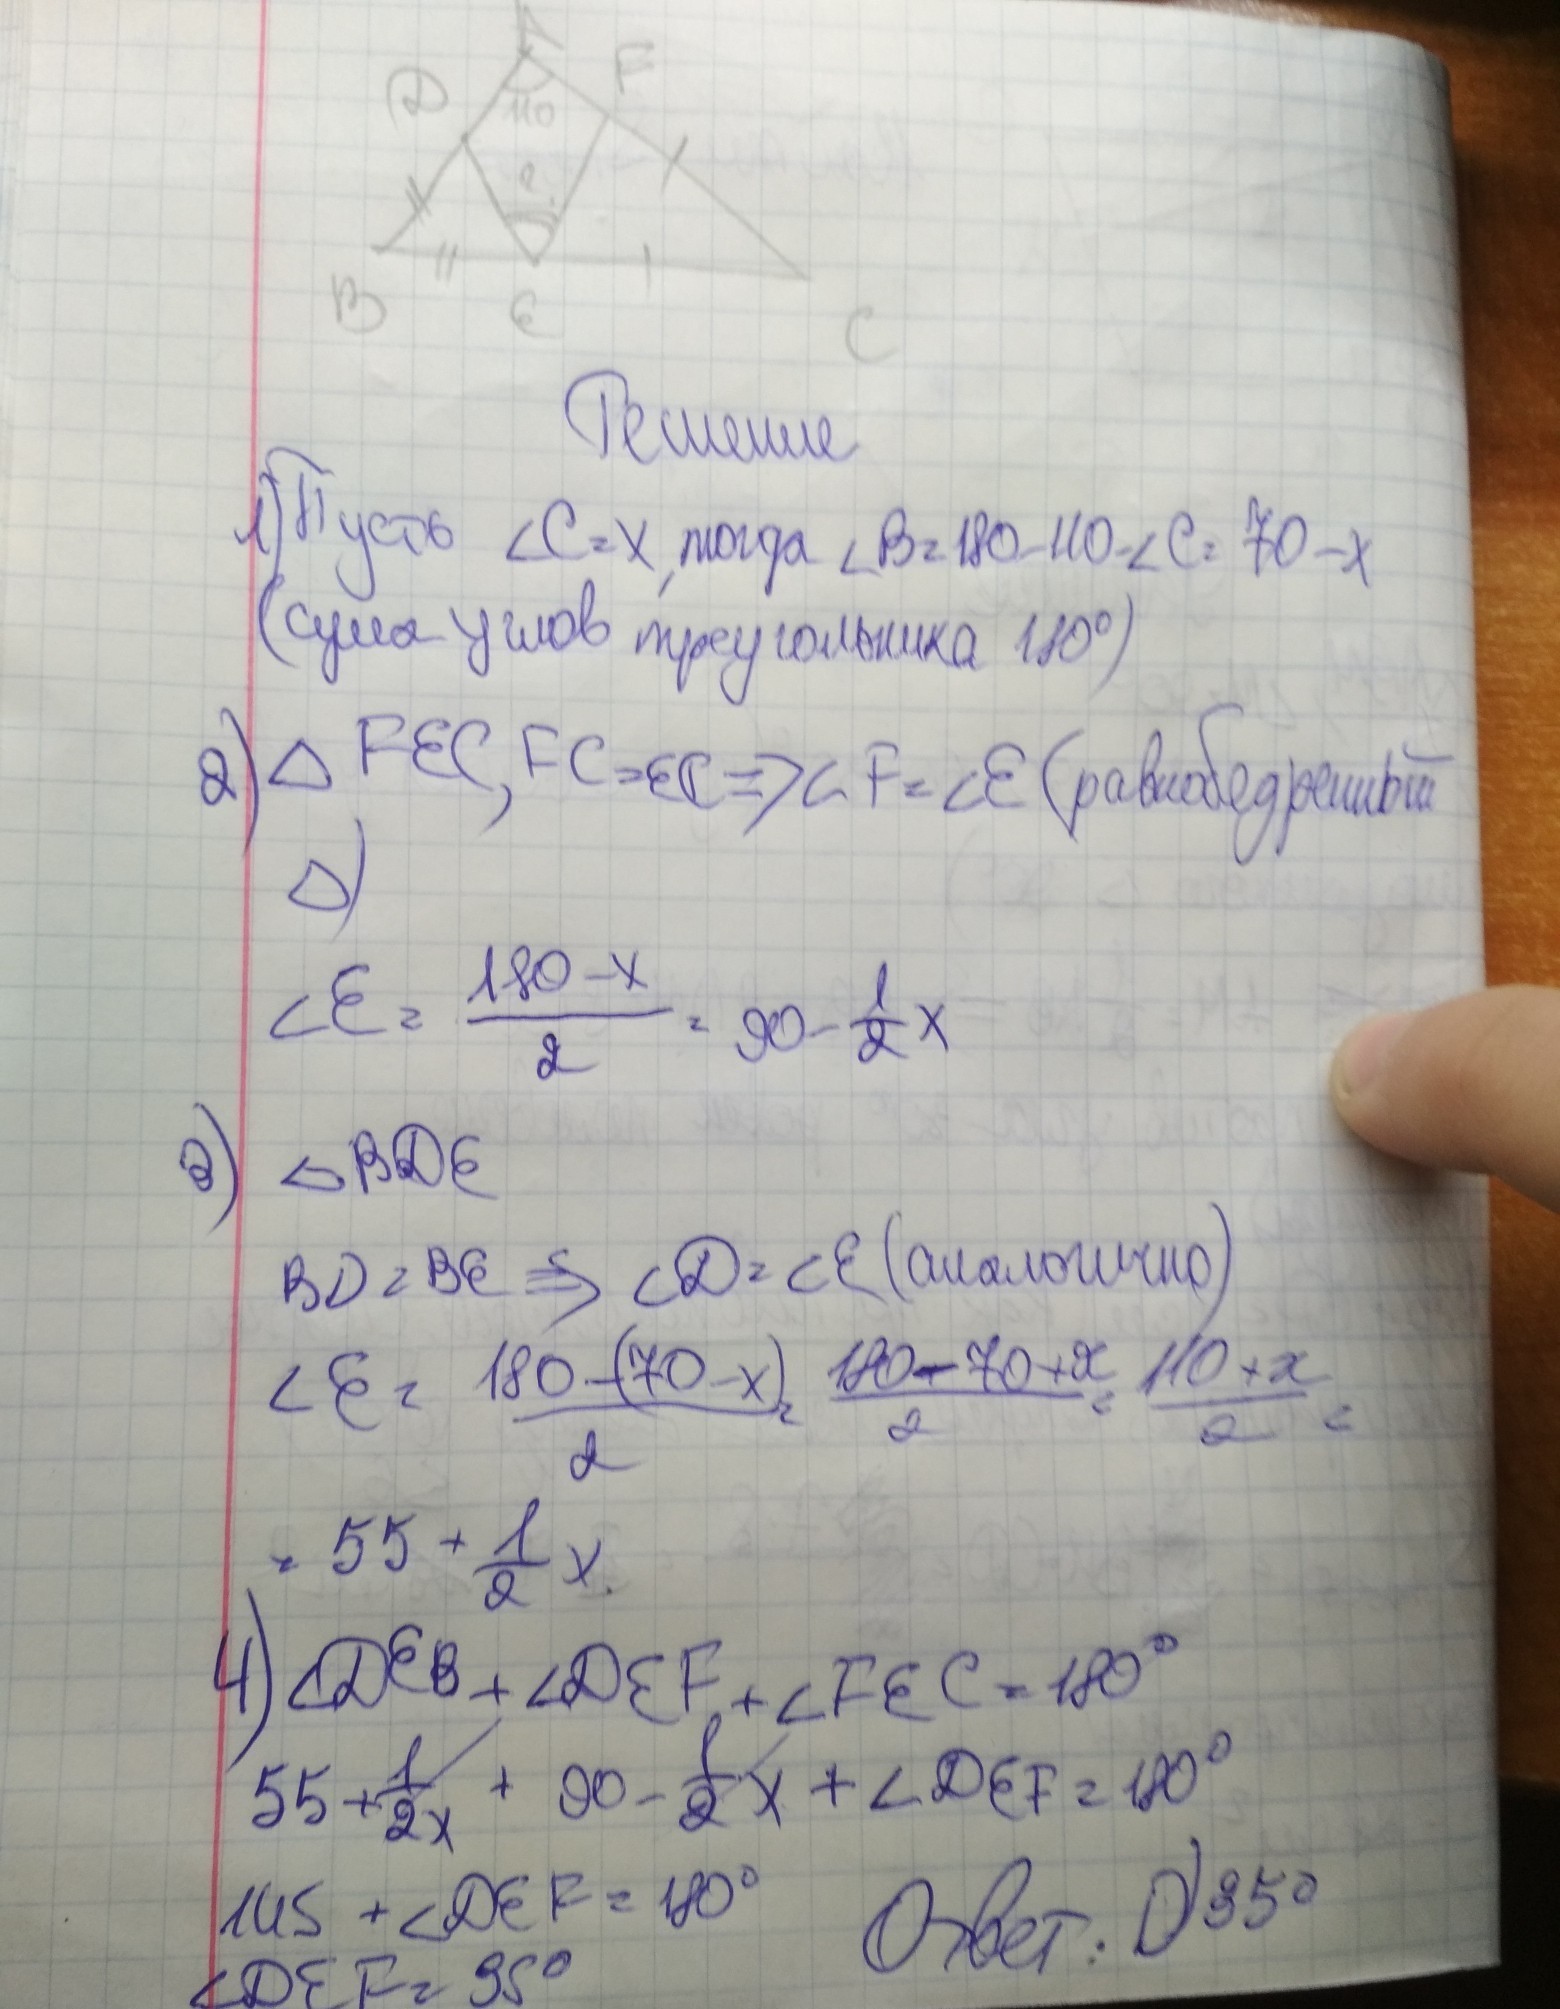 A
D F
110
?
B E C
Решение
1) Пусть ∠C=x, тогда ∠B=180-110-∠C=70-x
(сума углов треугольника 180°)
2) △ FEC, FC=EC=>∠F=∠E (равнобедренный
△)
∠E = (180-x)/2 = 90-1/2 x
3) △BDE
BD=BE => ∠D=∠E (аналогично)
∠E = (180-(70-x))/2 = (180-70+x)/2 = (110+x)/2 =
= 55 + 1/2 x.
4) ∠DEB + ∠DEF + ∠FEC = 180°
55 + 1/2x + 90 - 1/2 x + ∠DEF = 180°
145 + ∠DEF = 180°
∠DEF = 35°
Ответ: D) 35°